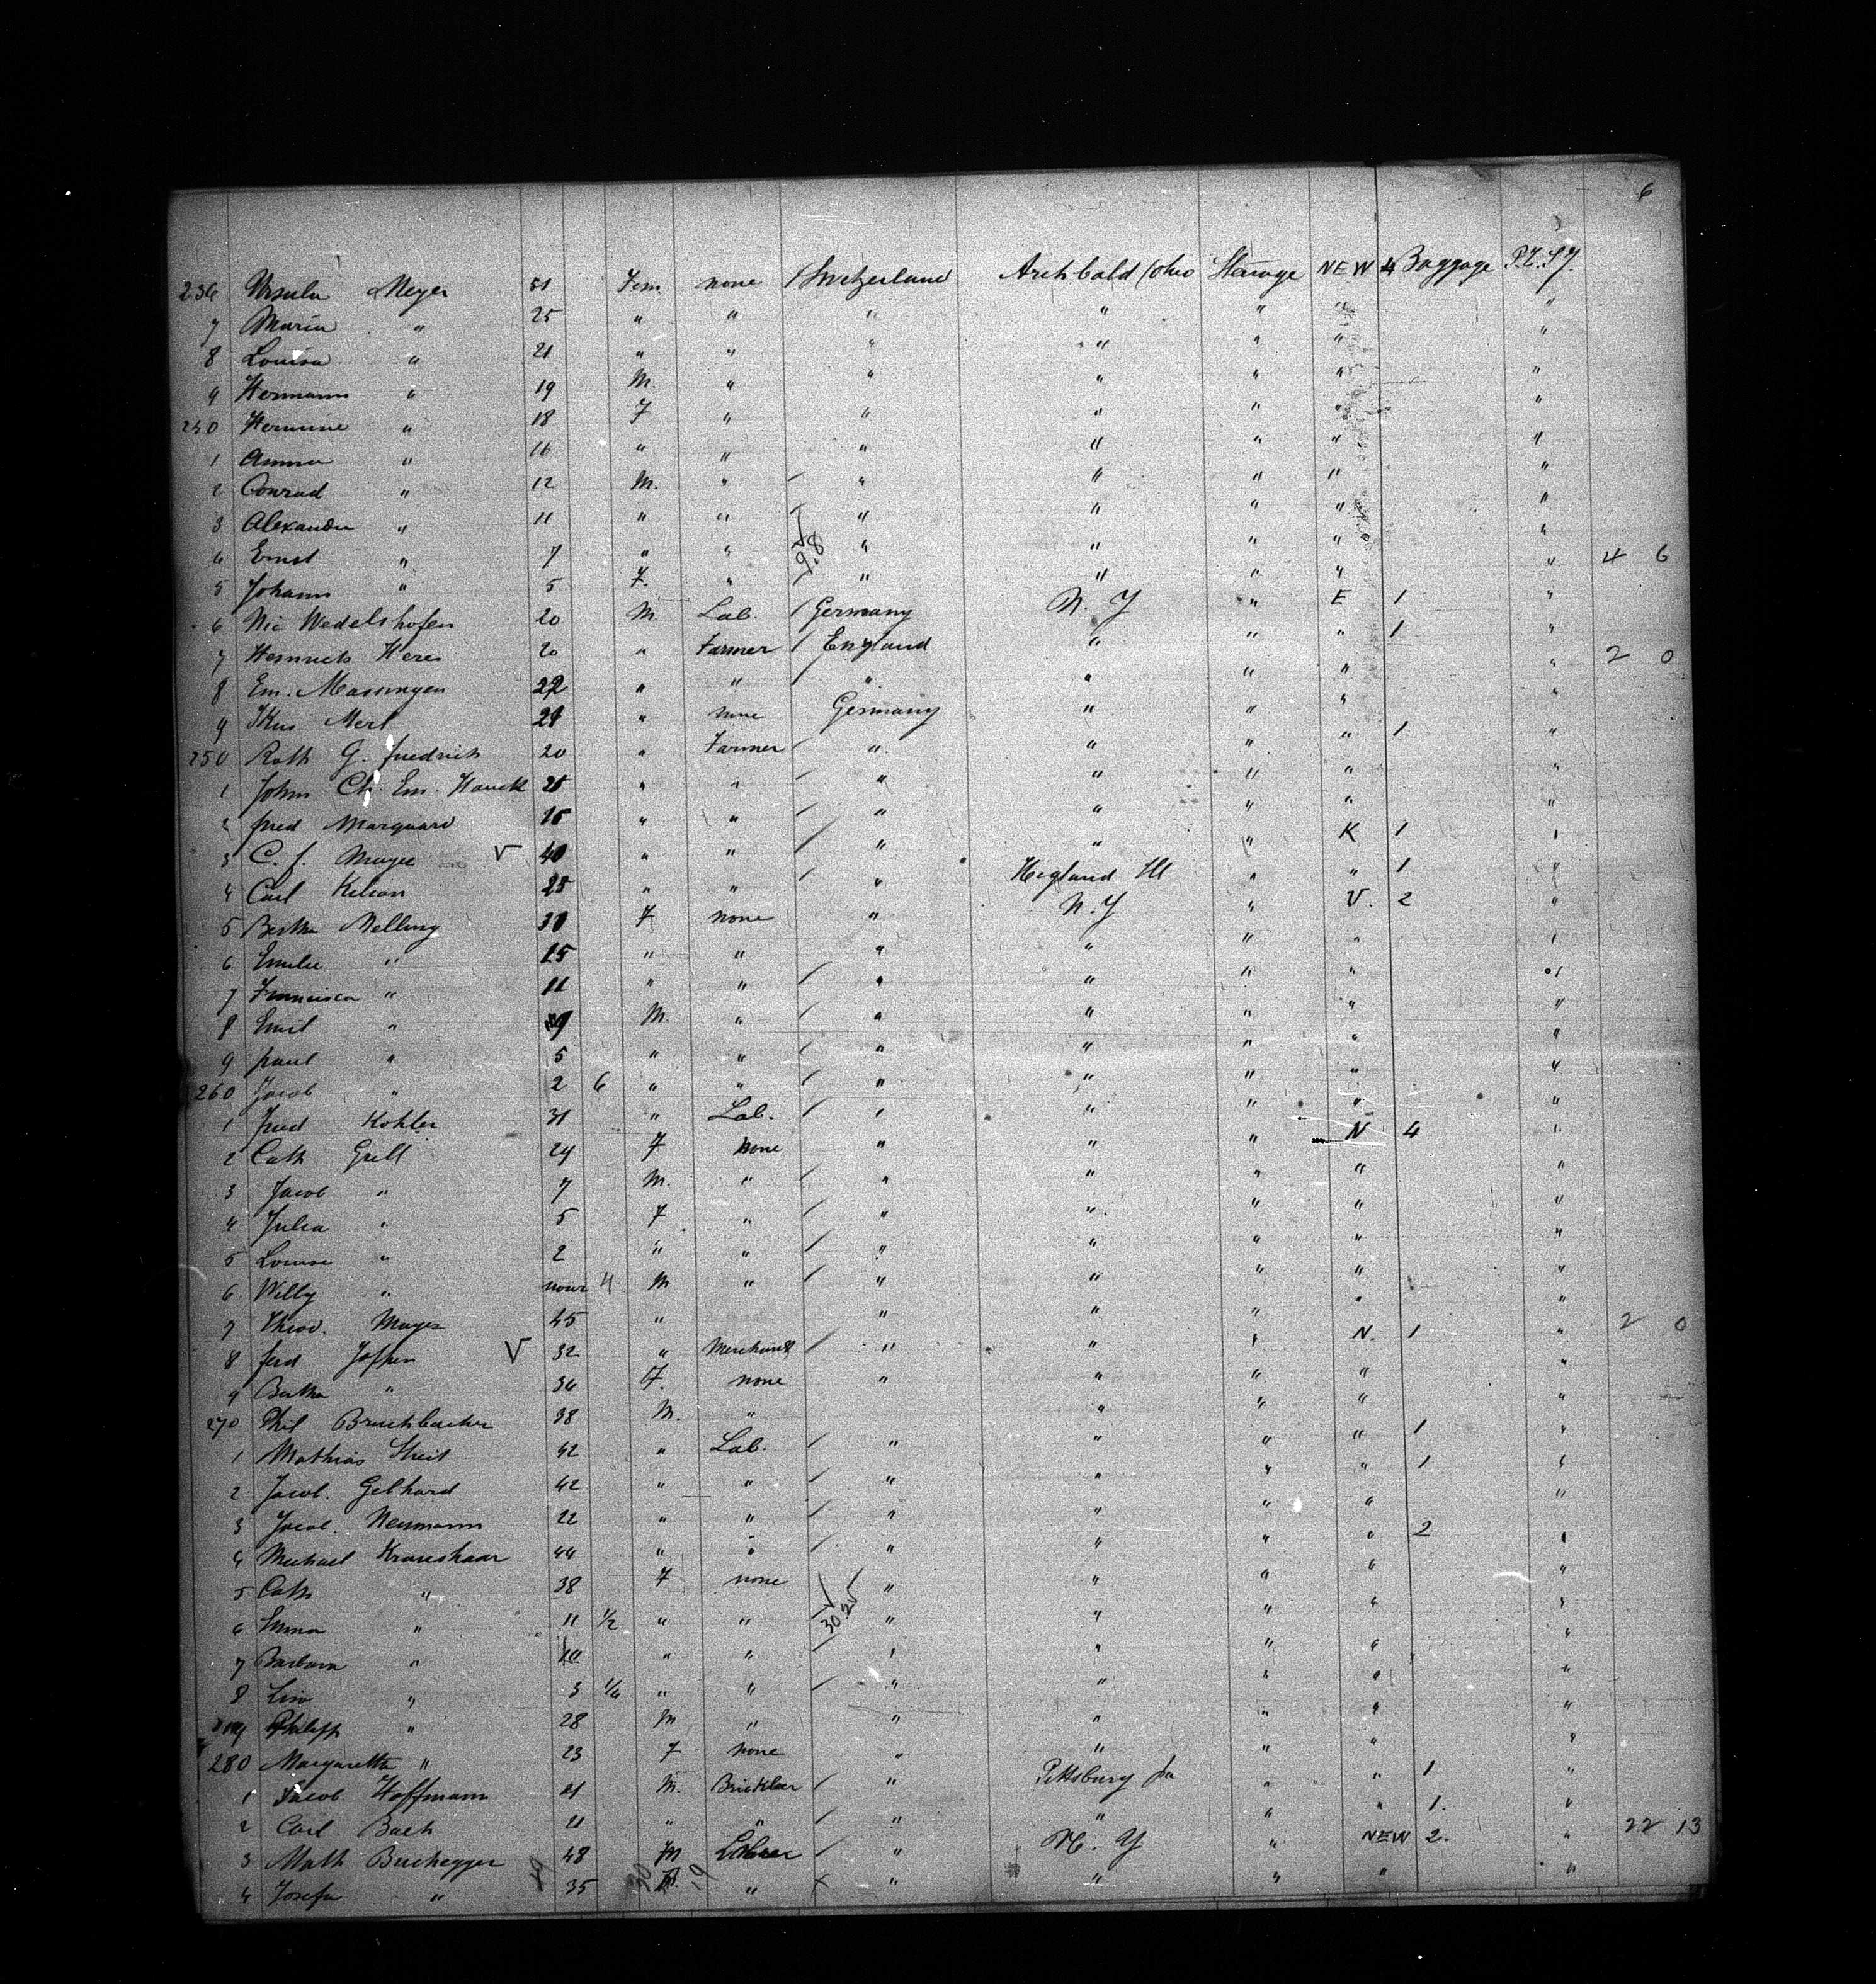 6
236 Ursula Meyer 51 Fem none Switzerland Archbold / Ohio Steerage NEW 4 Baggage
7 Maria " 25 " " " " " " "
8 Louisa " 21 " " " " " " "
9 Hermann " 19 M. " " " " " "
240 Hermine " 18 F " " " " " "
1 Anna " 16 " " " " " " "
2 Conrad " 12 M. " " " " " "
3 Alexander " 11 " " " " " " "
4 Ernst " 7 " " " " " " " 4 6
5 Johann " 5 F. " " " " " "
6 Nic Wedelshofen 20 M Lab. Germany N. Y " E 1 "
7 Heinrich Heres 20 " Farmer England " " " 1 " 2 0
8 Em. Massingen 22 " " " " " " "
9 Merl 21 " none Germany " " " "
250 Roth G. fredrich 20 " Farmer " " " " 1 "
1 John Ch. Em. Hauck 25 " " " " " " "
2 fred Marquard 25 " " " " " " "
3 C. f. Mayer V 40 " " " " " K 1 "
4 Carl Kilian 25 " " " Higland Ill " " 1 "
5 Bertha Melling 30 F none " N. Y " V. 2 "
6 Emilie " 15 " " " " " " "
7 Francisca " 11 " " " " " " "
8 Emil " 9 M. " " " " " "
9 paul " 5 " " " " " " "
260 Jacob " 2 6 " " " " " " "
1 fred Kohler 31 " Lab. " " " " "
2 Cath Grell 24 F none " " " N 4 "
3 Jacob " 7 M. " " " " " "
4 Julia " 5 F " " " " " "
5 Louise " 2 " " " " " " "
6 Willy " 4 M " " " " " "
7 Theod. Mayer 45 " " " " " " 2 0
8 ferd V 32 " Merchant " " " N. 1 "
9 Bertha " 36 F. none " " " " "
270 Phil Bruchbacher 38 M. " " " " "
1 Mathias Streit 42 " Lab. " " " " 1 "
2 Jacob. Gebhard 42 " " " " " " 1 "
3 Jacob. Neumann 22 " " " " " " "
4 Michael Kraushaar 44 " " " " " " 2 "
5 Cath " 38 F none " " " " "
6 Emma " 11 1/2 " " " " " " "
7 Barbara " 10 " " " " " " "
8 Lina " 3 1/4 " " " " " " "
9 Philipp " 28 M " " " " " "
280 Margaretha " 23 F none " " " " "
1 Jacob Hoffmann 21 M. " Pittsburg pa " " 1 "
2 Carl Bach 21 " " " " " " 1. "
3 Math Buchegger 48 M " N. Y " NEW 2. " 22 13
4 Josefa " 35 " " " " " "